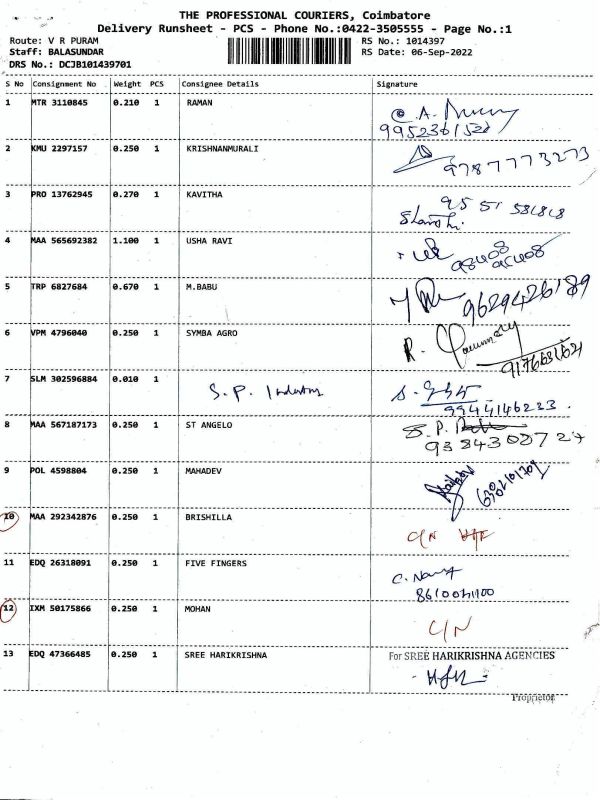 THE PROFESSIONAL COURIERS, Coimbatore
Delivery Runsheet - PCS - Phone No.:0422-3505555 - Page No.:1
Route: V R PURAM RS No.: 1014397
Staff: BALASUNDAR RS Date: 06-Sep-2022
DRS No.: DCJB101439701
S No Consignment No Weight PCS Consignee Details Signature
1 MTR 3110845 0.210 1 RAMAN
2 KMU 2297157 0.250 1 KRISHNANMURALI
9787773273
3 PRO 13762945 0.270 1 KAVITHA
95 51 581818
4 MAA 565692382 1.100 1 USHA RAVI
5 TRP 6827684 0.670 1 M.BABU
9629426189
6 VPM 4796040 0.250 1 SYMBA AGRO
R.
7 SLM 302596884 0.010 1 S.P. Industry
9944146233
8 MAA 567187173 0.250 1 ST ANGELO
S.P.
9384308727
9 POL 4598804 0.250 1 MAHADEV
10 MAA 292342876 0.250 1 BRISHILLA
C/N
11 EDQ 26318091 0.250 1 FIVE FINGERS
12 IXM 50175866 0.250 1 MOHAN
C/N
13 EDQ 47366485 0.250 1 SREE HARIKRISHNA For SREE HARIKRISHNA AGENCIES
Proprietor